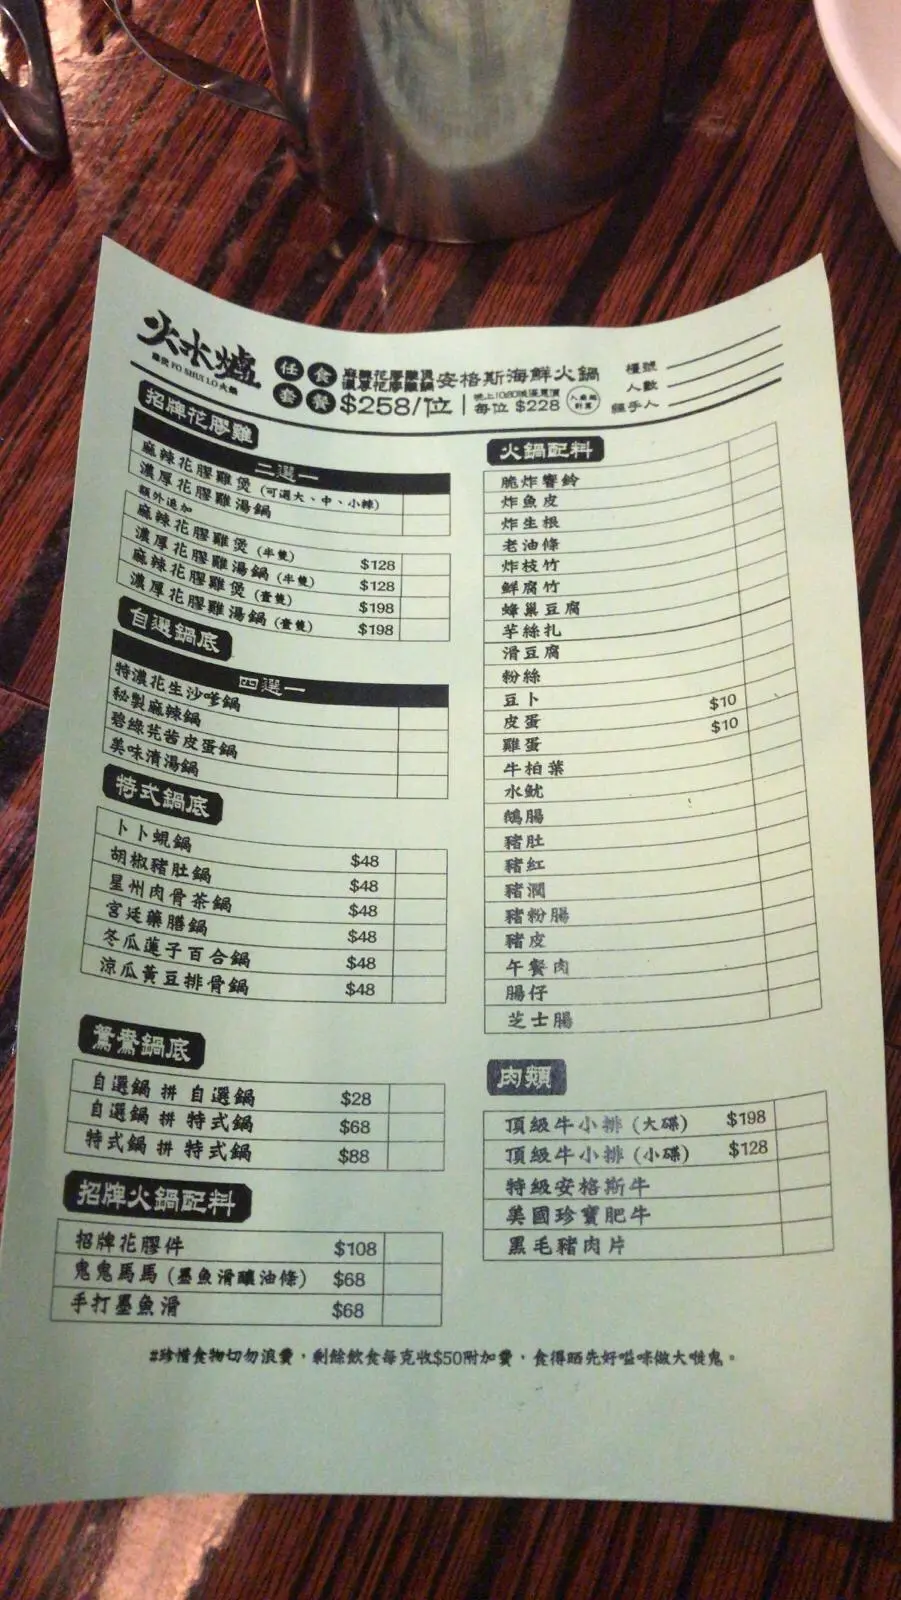 火水爐
FO SHUI LO 火鍋
任食套餐
麻辣花膠雞煲
濃厚花膠雞鍋
安格斯海鮮火鍋
$258/位
每位 $228
檯號
人數
經手人
招牌花膠雞
二選一
麻辣花膠雞煲 (可選大、中、小辣)
濃厚花膠雞湯鍋
額外追加
麻辣花膠雞煲 (半隻) $128
濃厚花膠雞湯鍋 (半隻) $128
麻辣花膠雞煲 (壹隻) $198
濃厚花膠雞湯鍋 (壹隻) $198
自選鍋底
四選一
特濃花生沙嗲鍋
秘製麻辣鍋
碧綠芫茜皮蛋鍋
美味清湯鍋
特式鍋底
卜卜蜆鍋 $48
胡椒豬肚鍋 $48
星州肉骨茶鍋 $48
宮廷藥膳鍋 $48
冬瓜蓮子百合鍋 $48
涼瓜黃豆排骨鍋 $48
鴛鴦鍋底
自選鍋 拼 自選鍋 $28
自選鍋 拼 特式鍋 $68
特式鍋 拼 特式鍋 $88
招牌火鍋配料
招牌花膠件 $108
鬼鬼馬馬 (墨魚滑釀油條) $68
手打墨魚滑 $68
火鍋配料
脆炸響鈴
炸魚皮
炸生根
老油條
炸枝竹
鮮腐竹
蜂巢豆腐
芋絲扎
滑豆腐
粉絲
豆卜
皮蛋 $10
雞蛋 $10
牛柏葉
水魷
鵝腸
豬肚
豬紅
豬潤
豬粉腸
豬皮
午餐肉
腸仔
芝士腸
肉類
頂級牛小排 (大碟) $198
頂級牛小排 (小碟) $128
特級安格斯牛
美國珍寶肥牛
黑毛豬肉片
#珍惜食物切勿浪費，剩餘飲食每克收$50附加費，食得晒先好嗌咪做大嘥鬼。